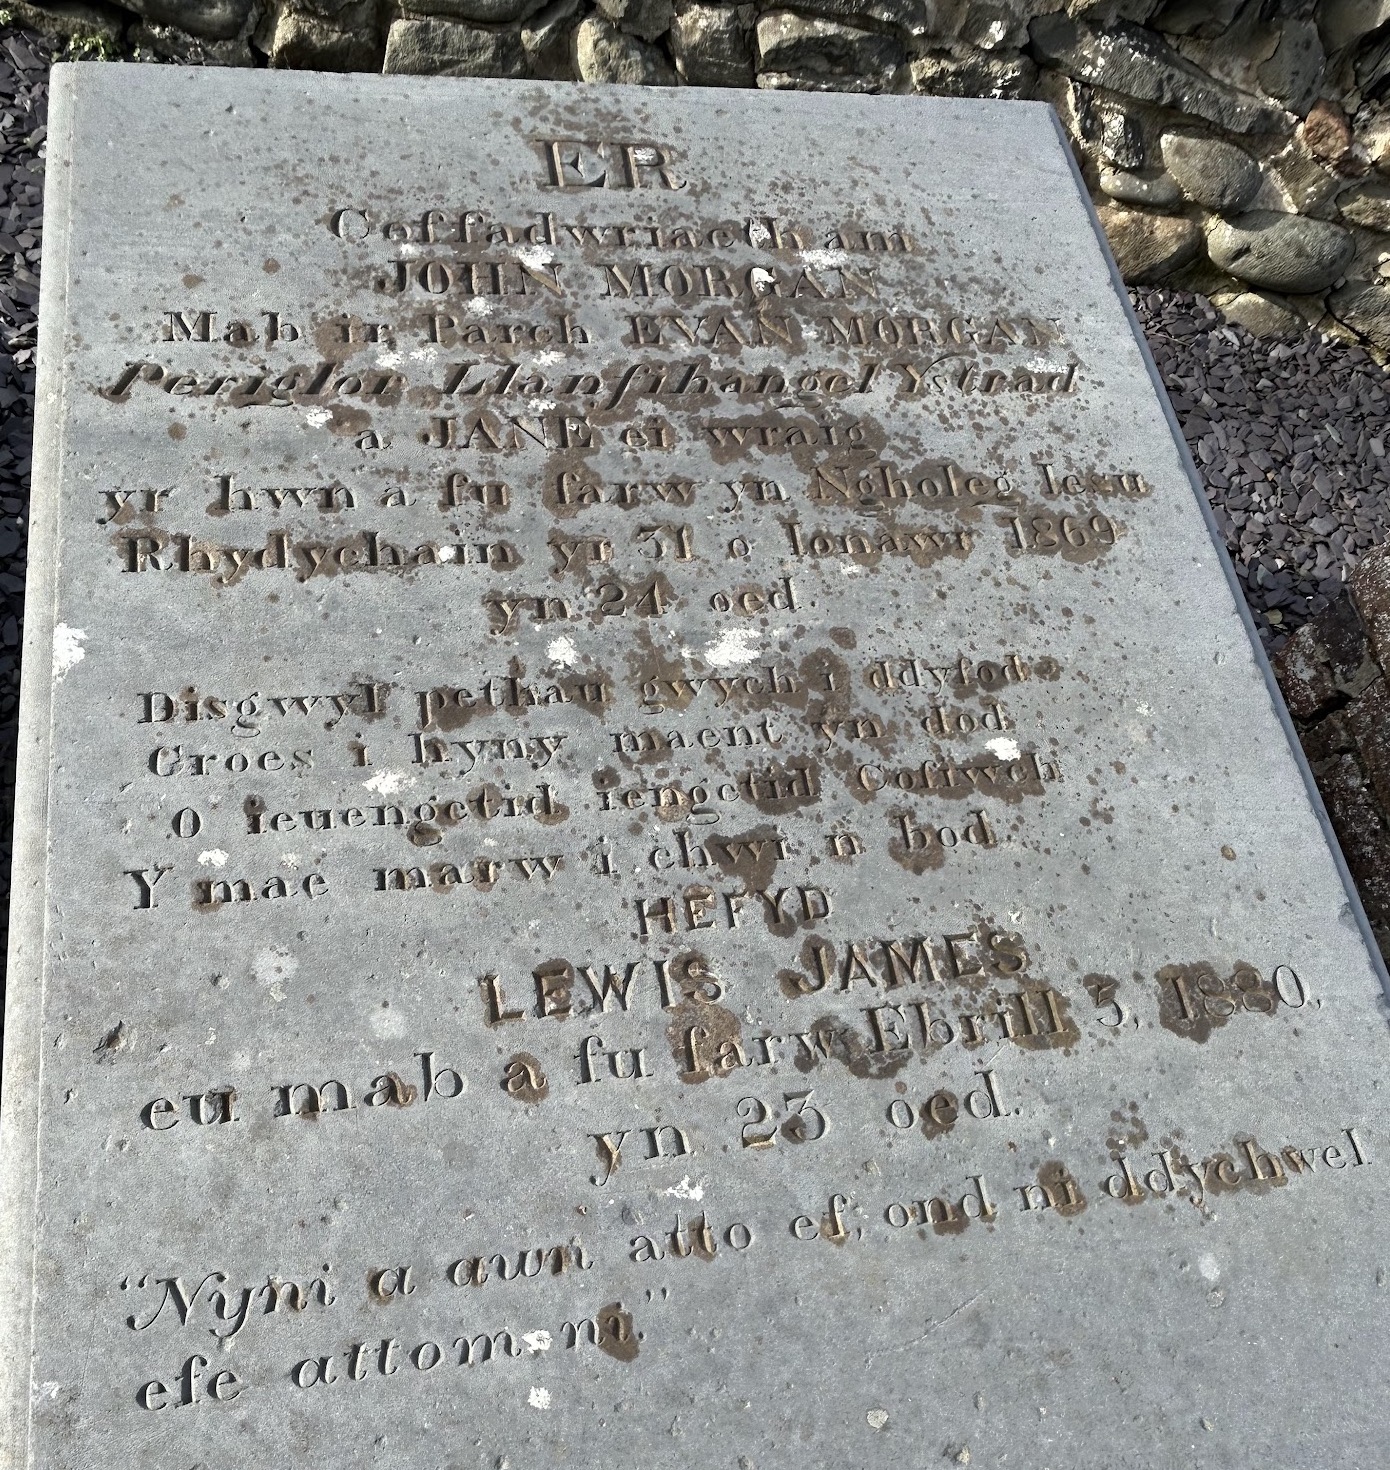 ER
Coffadwriaeth am
JOHN MORGAN
Mab ir Parch EVAN MORGAN
Periglor Llanfihangel Ystrad
a JANE ei wraig
yr hwn a fu farw yn Ngholeg Iesu
Rhydychain yr 31 o Ionawr 1869
yn 24 oed.
Disgwyl pethau gwych i ddyfod
Groes i hyny maent yn dod
O ieuengctid iengctid Cofiwch
Y mae marw i chwi n bod.
HEFYD
LEWIS JAMES
eu mab a fu farw Ebrill 5, 1880,
yn 23 oed.
"Nyni a awn atto ef, ond ni ddychwel
efe attom ni."